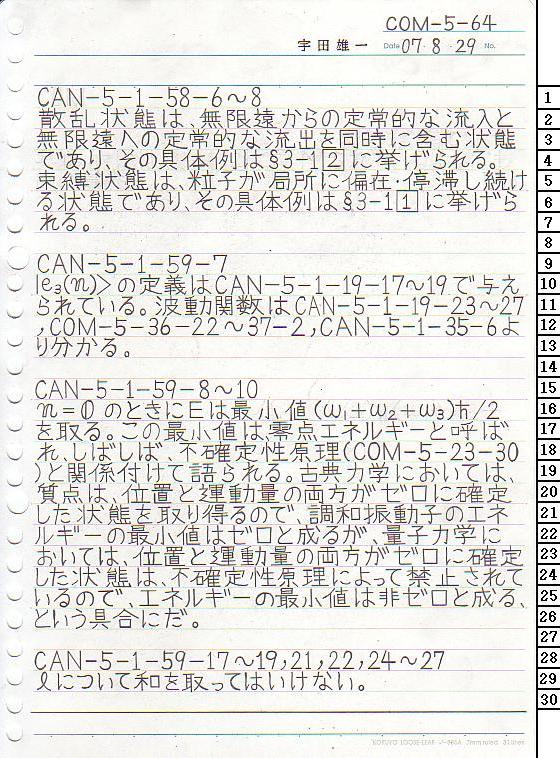 COM-5-64
宇田雄一 Date 07・8・29 No.
CAN-5-1-58-6〜8
散乱状態は、無限遠からの定常的な流入と
無限遠への定常的な流出を同時に含む状態
であり、その具体例は§3-1[2]に挙げられる。
束縛状態は、粒子が局所に偏在・停滞し続け
る状態であり、その具体例は§3-1[1]に挙げら
れる。
CAN-5-1-59-7
|e₃(n)>の定義はCAN-5-1-19-17〜19で与え
られている。波動関数はCAN-5-1-19-23〜27
,COM-5-36-22〜37-2,CAN-5-1-35-6よ
り分かる。
CAN-5-1-59-8〜10
n=0のときにEは最小値(ω₁+ω₂+ω₃)ħ/2
を取る。この最小値は、零点エネルギーと呼ば
れ、しばしば、不確定性原理(COM-5-23-30
)と関係付けて語られる。古典力学においては、
質点は、位置と運動量の両方がゼロに確定
した状態を取り得るので、調和振動子のエネ
ルギーの最小値はゼロと成るが、量子力学に
おいては、位置と運動量の両方がゼロに確定
した状態は、不確定性原理によって禁止されて
いるので、エネルギーの最小値は非ゼロと成る、
という具合にだ。
CAN-5-1-59-17〜19,21,22,24〜27
ℓについて和を取ってはいけない。
KOKUYO LOOSE-LEAF
1
2
3
4
5
6
7
8
9
10
11
12
13
14
15
16
17
18
19
20
21
22
23
24
25
26
27
28
29
30